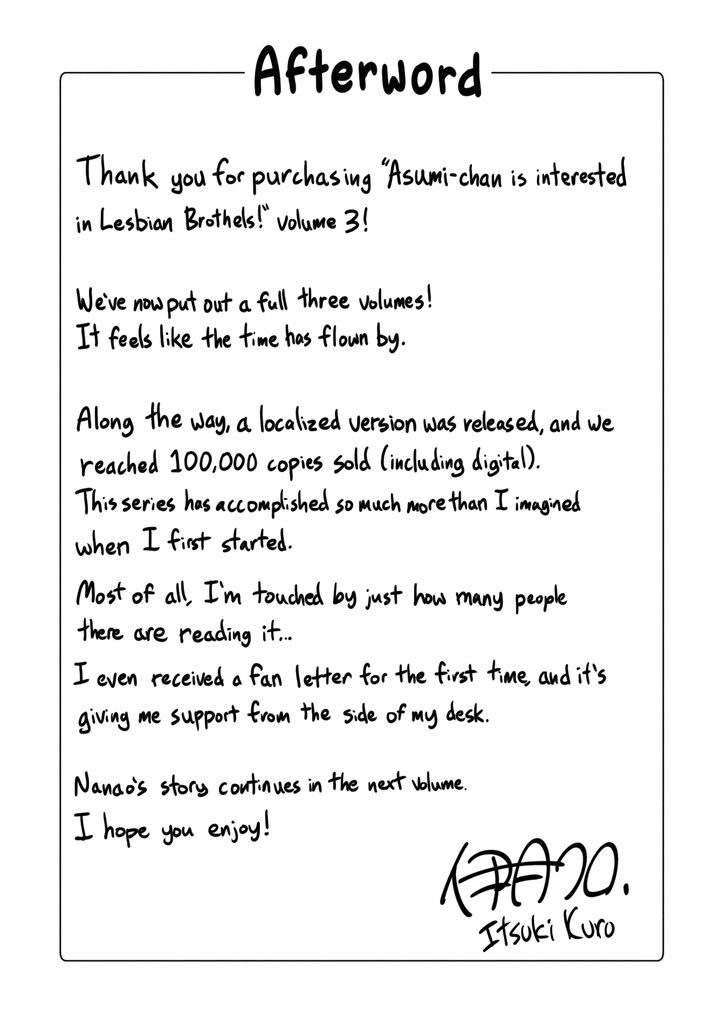 Afterword
Thank you for purchasing "Asumi-chan is interested
in Lesbian Brothels!" volume 3!
We've now put out a full three volumes!
It feels like the time has flown by.
Along the way, a localized version was released, and we
reached 100,000 copies sold (including digital).
This series has accomplished so much more than I imagined
when I first started.
Most of all, I'm touched by just how many people
there are reading it...
I even received a fan letter for the first time, and it's
giving me support from the side of my desk.
Nanao's story continues in the next volume.
I hope you enjoy!
Itsuki Kuro